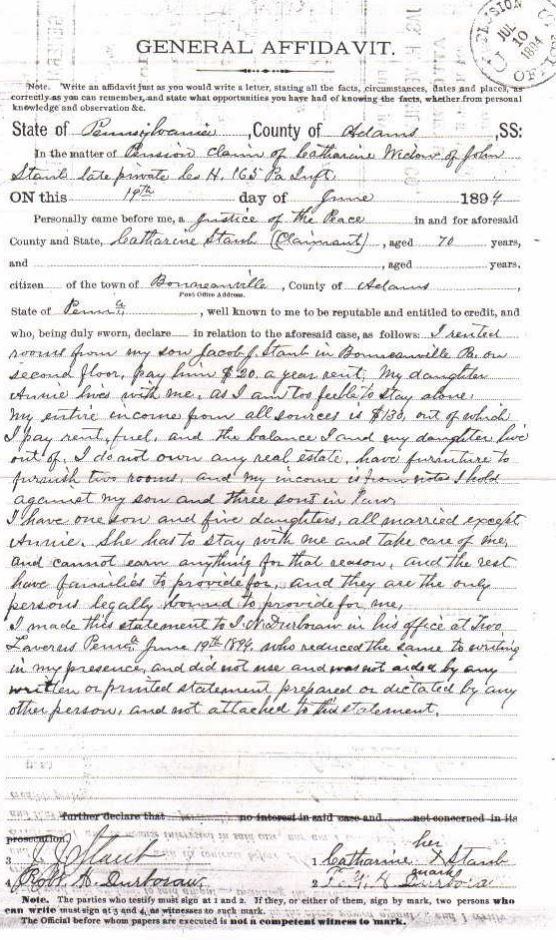 GENERAL AFFIDAVIT.
JUL
10
1894
Note. Write an affidavit just as you would write a letter, stating all the facts, circumstances, dates and places, as
correctly as you can remember, and state what opportunities you have had of knowing the facts, whether from personal
knowledge and observation &c.
State of Pennsylvania, County of Adams, SS:
In the matter of Pension claim of Catharine Widow of John
Staub late private Co H. 165 Pa Inft.
ON this 19th day of June 1894
Personally came before me, a Justice of the Peace in and for aforesaid
County and State, Catharine Staub (Claimant), aged 70 years,
and , aged years,
citizen of the town of Bonneauville, County of Adams
Post Office Address.
State of Penna, well known to me to be reputable and entitled to credit, and
who, being duly sworn, declare in relation to the aforesaid case, as follows: I rented
rooms from my son Jacob J. Staub in Bonneauville Pa. on
second floor, pay him $20. a year rent, My daughter
Annie lives with me, as I am too feeble to stay alone.
My entire income from all sources is $130, out of which
I pay rent, fuel, and the balance I and my daughter live
out of. I do not own any real estate, have furniture to
furnish two rooms, and my income is from notes I hold
against my son and three sons in law,
I have one son and five daughters, all married except
Annie. She has to stay with me and take care of me,
and cannot earn anything for that reason, and the rest
have families to provide for, and they are the only
persons legally bound to provide for me,
I made this statement to I. N. Durboraw in his office at Two
Taverns Penna June 19th 1894, who reduced the same to writing
in my presence, and did not use and was not aided by any
written or printed statement prepared or dictated by any
other person, and not attached to this statement.
further declare that no interest in said case and not concerned in its
prosecution.
her
3 J J Staub 1 Catharine X Staub
mark
4 Robt H. Durboraw 2
Note. The parties who testify must sign at 1 and 2. If they, or either of them, sign by mark, two persons who
can write must sign at 3 and 4, as witnesses to such mark.
The Official before whom papers are executed is not a competent witness to mark.